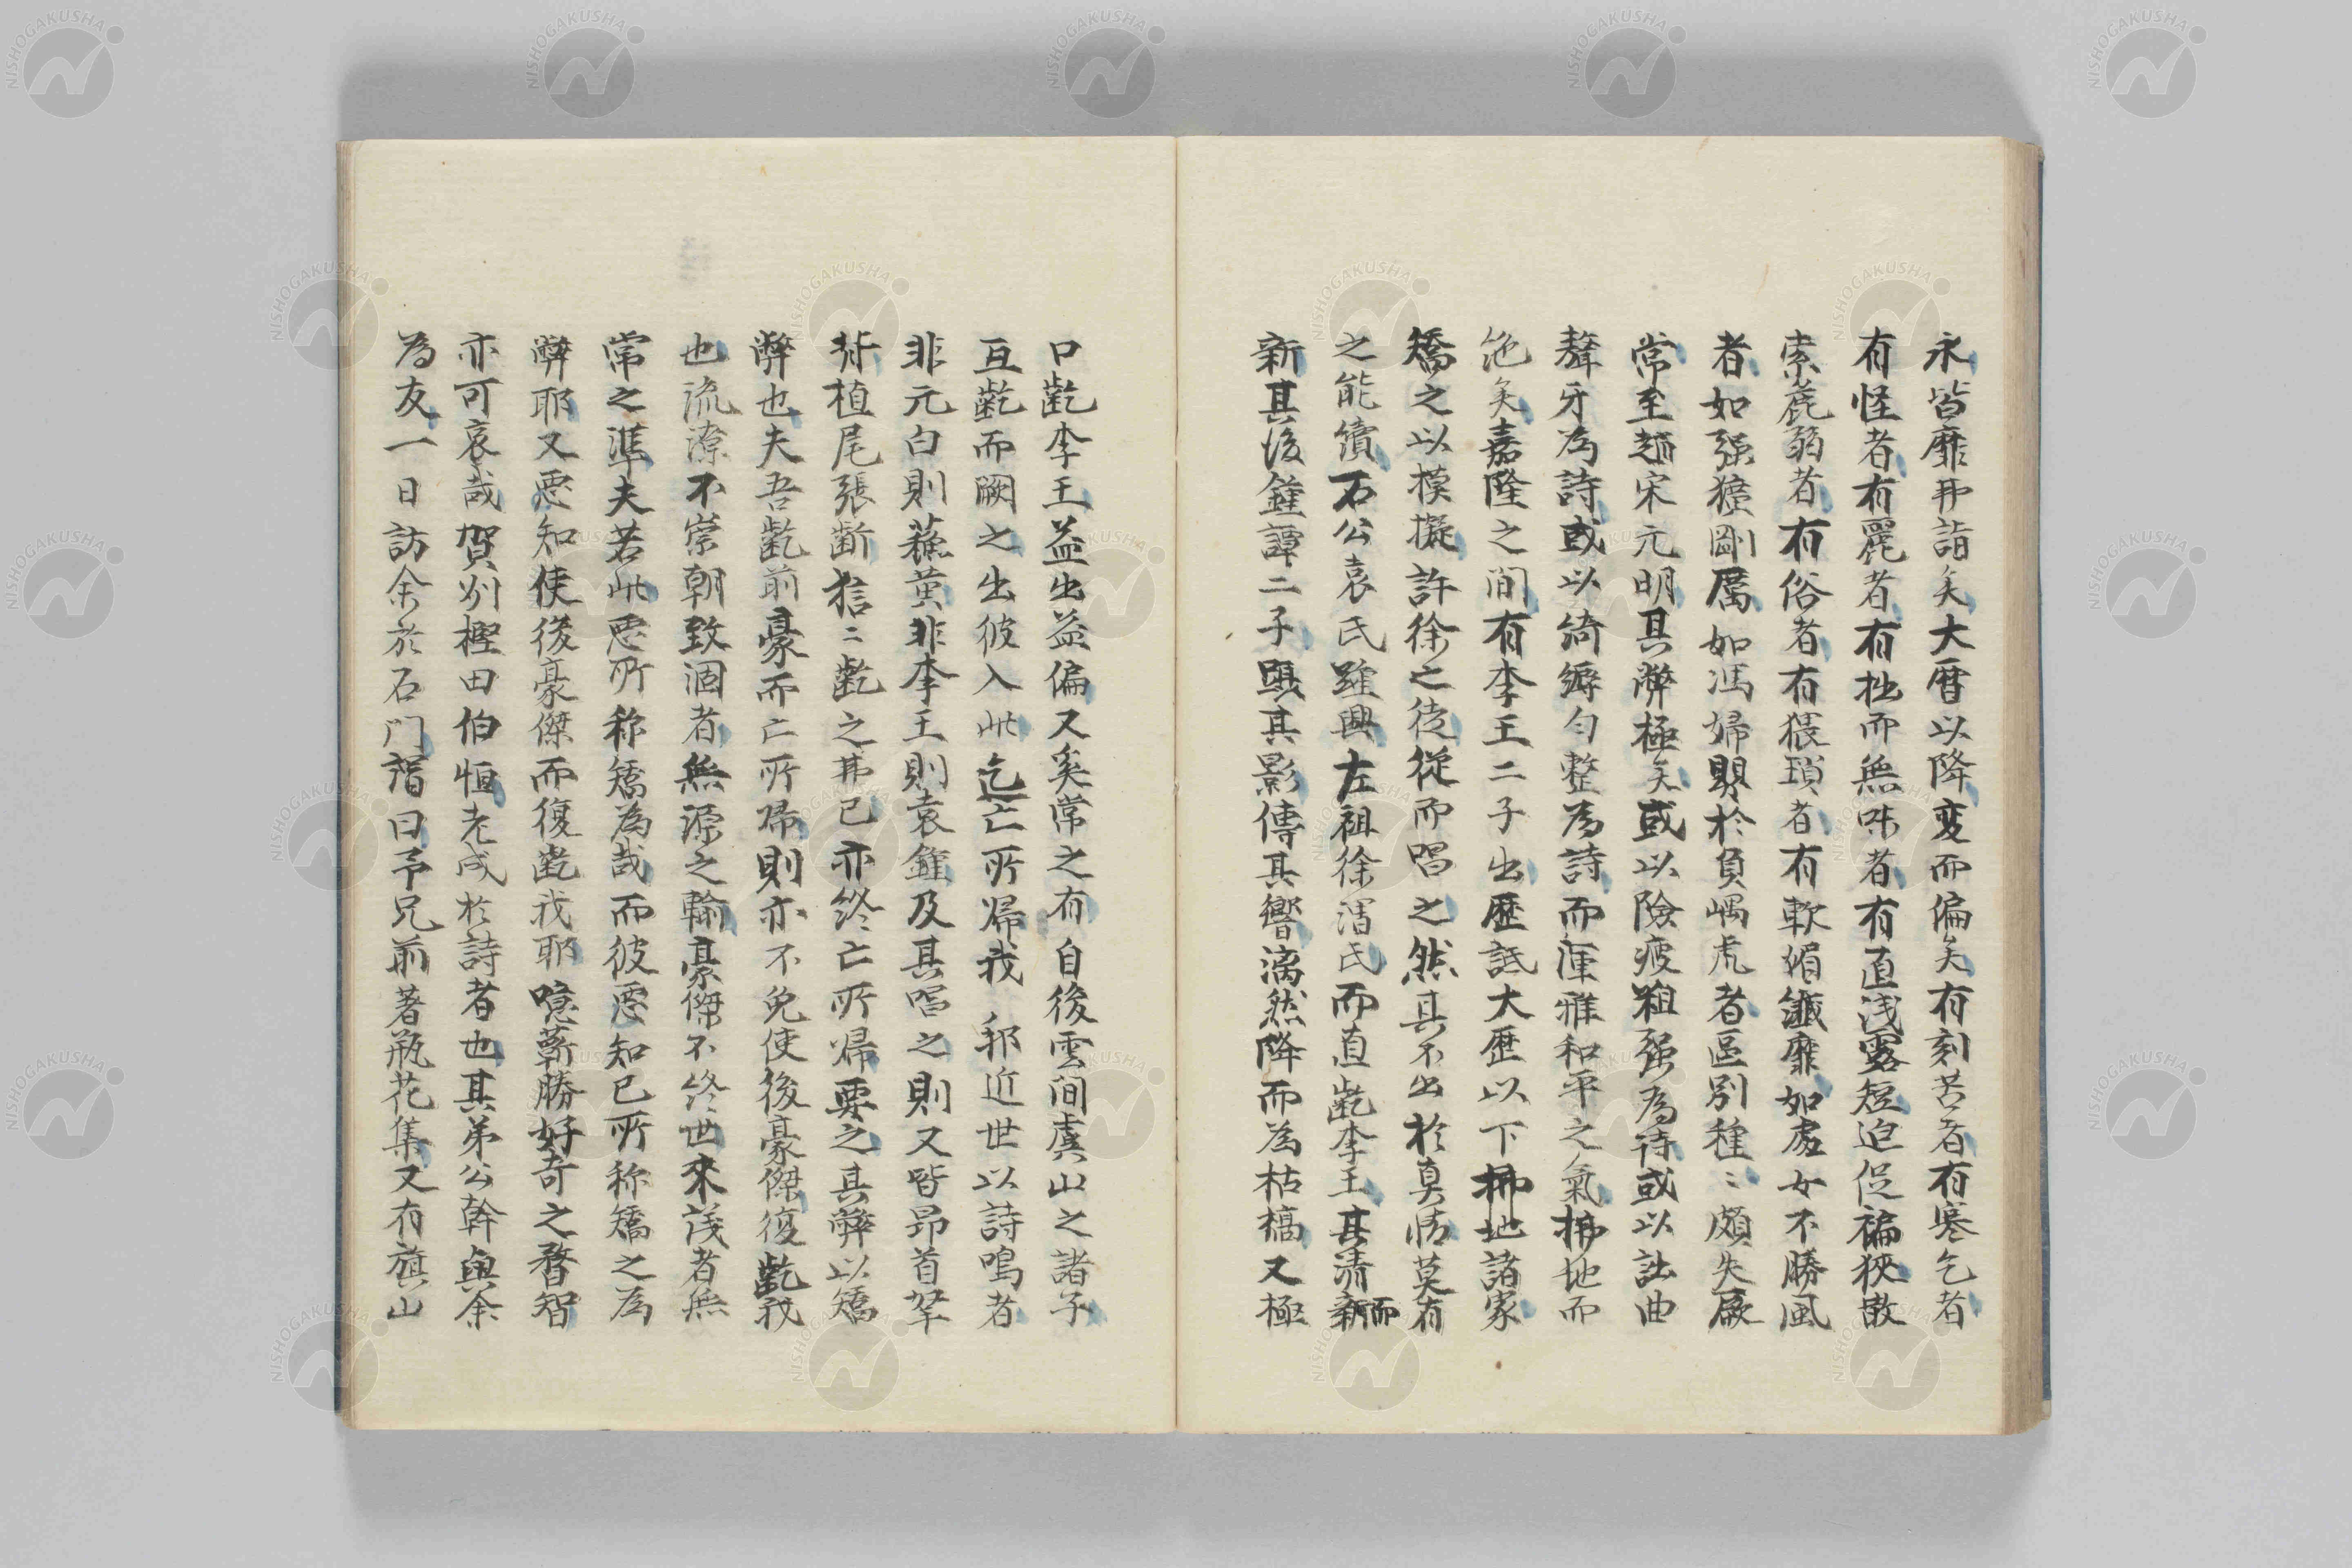 永皆靡弗詣矣大暦以降変而偏矣有刻苦者有寒乞者
有怪者有麗者有拙而無味者有直浅露短迫促褊狹散
索萎弱者有俗者有猥瑣者有軟媚纖靡如處女不勝風
者如强獷剛厲如馮婦䁂於負嵎虎者區別種〻頗失厥
常至趙宋元明其弊極矣或以險疲粗强為詩或以詘曲
聱牙為詩或以綺縟匀整為詩而渾雅和平之氣拂地而
绝矣嘉隆之間有李王二子出歴詆大歴以下拂地諸家
矯之以模擬許徐之徒從而唱之然其不出於真情莫有
之能續石公袁氏雖興左祖徐渭氏而直齕李王其清新而
新其後鍾譚二子躡其影傳其響漓然降而為枯槁又極
口齕李王益出益偏又奚常之有自後雲間虞山之諸子
互齕而闕之出彼入此迄亡所帰我 邦近世以詩鳴者
非元白則蘓黄非李王則袁鍾及其唱之則又皆昻首挙
胻植尾張齗狺〻齕之弗已亦終亡所帰要之其弊以矯
弊也夫吾齕前豪而亡所帰則亦不免使後豪傑復齕我
也流潦不崇朝致涸者無源之輸豪傑不終世来議者無
常之準夫若此悪所称矯為哉而彼悪知已所称矯之為
弊耶又悪知使後豪傑而復齕我耶噫蘄勝好奇之瞀智
亦可哀哉賀州樫田伯恒老成於詩者也其弟公幹與余
為友一日訪余於石門謂曰予兄前著瓶花集又有旗山